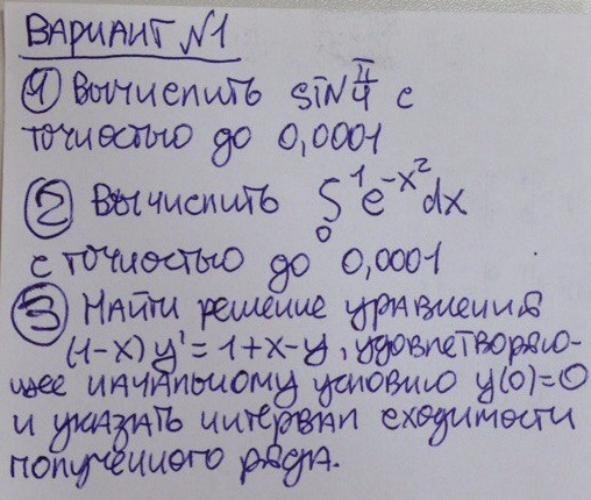 ВАРИАНТ №1
① Вычислить sin π/4 с
точностью до 0,0001
② Вычислить ∫₀¹ e^{-x²} dx
с точностью до 0,0001
③ Найти решение уравнения
(1-x) y' = 1+x-y, удовлетворяю-
щее начальному условию y(0)=0
и указать интервал сходимости
полученного ряда.